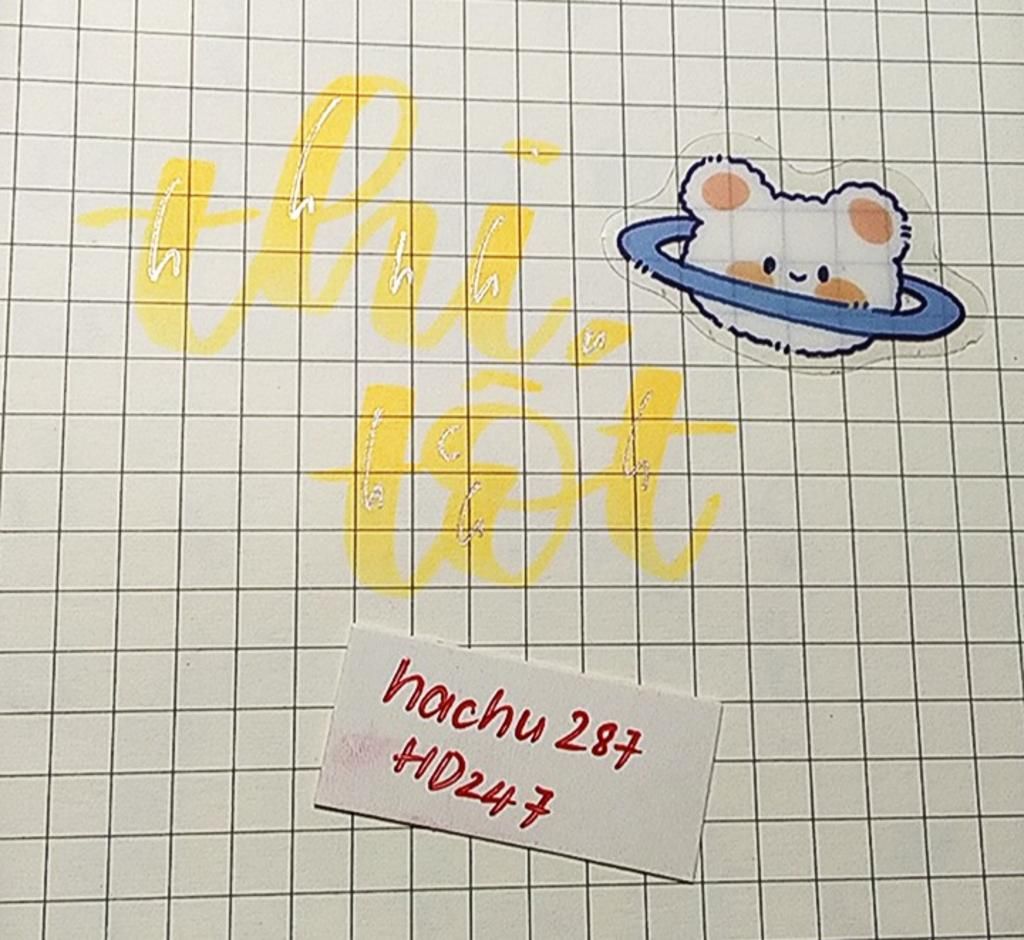 thi
tốt
hachu 287
HD247